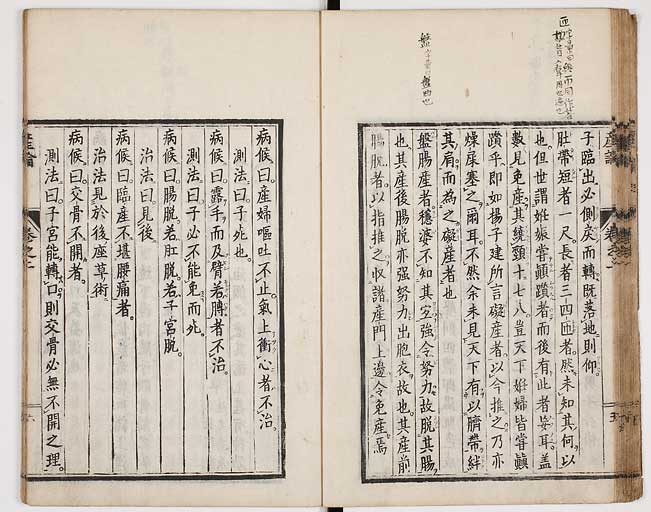 子臨出必側戾而轉既落地則仰
肚帶短者一尺長者三四匝者然未知其何以
也但世謂姙娠嘗顚躓者而後有此者妄耳蓋
數見免產其繞頸十七八豈天下姙婦皆嘗顚
躓乎卽如楊子建所言礙產者以今推之乃亦
燥屎塞之爾耳不然余未見天下有以臍帶絆
其肩而為之礙產者也
盤腸產者穩婆不知其宐強令努力故脫其腸
也其產後腸脫亦强努力出胞衣故也其產前
腸脫者以指推之收諸產門上邊令免產焉
產論
五
盤字書盤助也
病候曰產婦嘔吐不止氣上衝心者不治
測法曰子死也
病候曰露手而及臂若膊者不治
測法曰子必不能免而死
病候曰腸脫若肛脫若子宮脫
治法曰見後
病候曰臨產不堪腰痛者
治法見於後座草術
病候曰交骨不開者
測法曰子宮能轉口則交骨必無不開之理
產論
卷之二
六